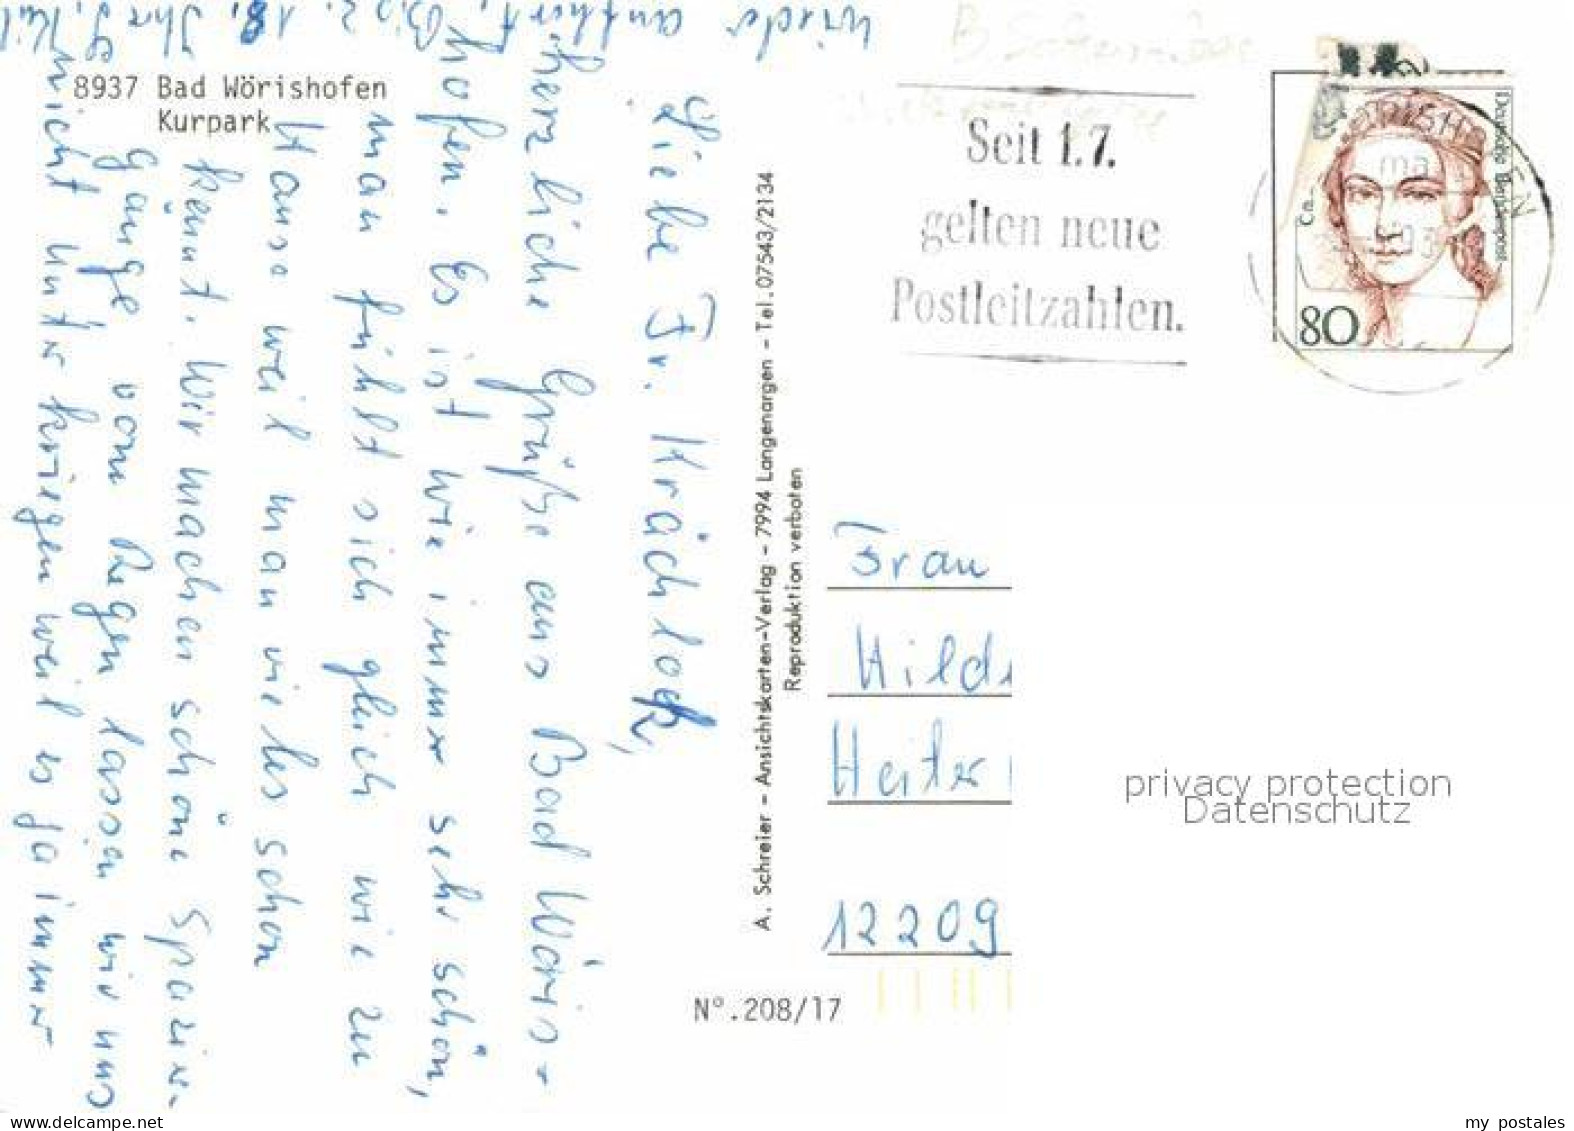 8937 Bad Wörishofen
Kurpark
Liebe Fr. Krächlok,
herzliche Grüße aus Bad Wöris-
hofen. Es ist wie immer sehr schön,
man fühlt sich gleich wie zu
Hause weil man vieles schon
kennt. Wir machen schöne Spazier-
gänge vom Regen lassen wir uns
nicht unterkriegen weil es ja immer
wieder aufhört. Bis z. 18. Ihre
A. Schreier - Ansichtskarten-Verlag - 7994 Langenargen - Tel. 07543/2134
Reproduktion verboten
N°.208/17
Seit 1.7.
gelten neue
Postleitzahlen.
Deutsche Bundespost
80
Frau
Hild
Heiter
12209
privacy protection
Datenschutz
www.delcampe.net
my postales